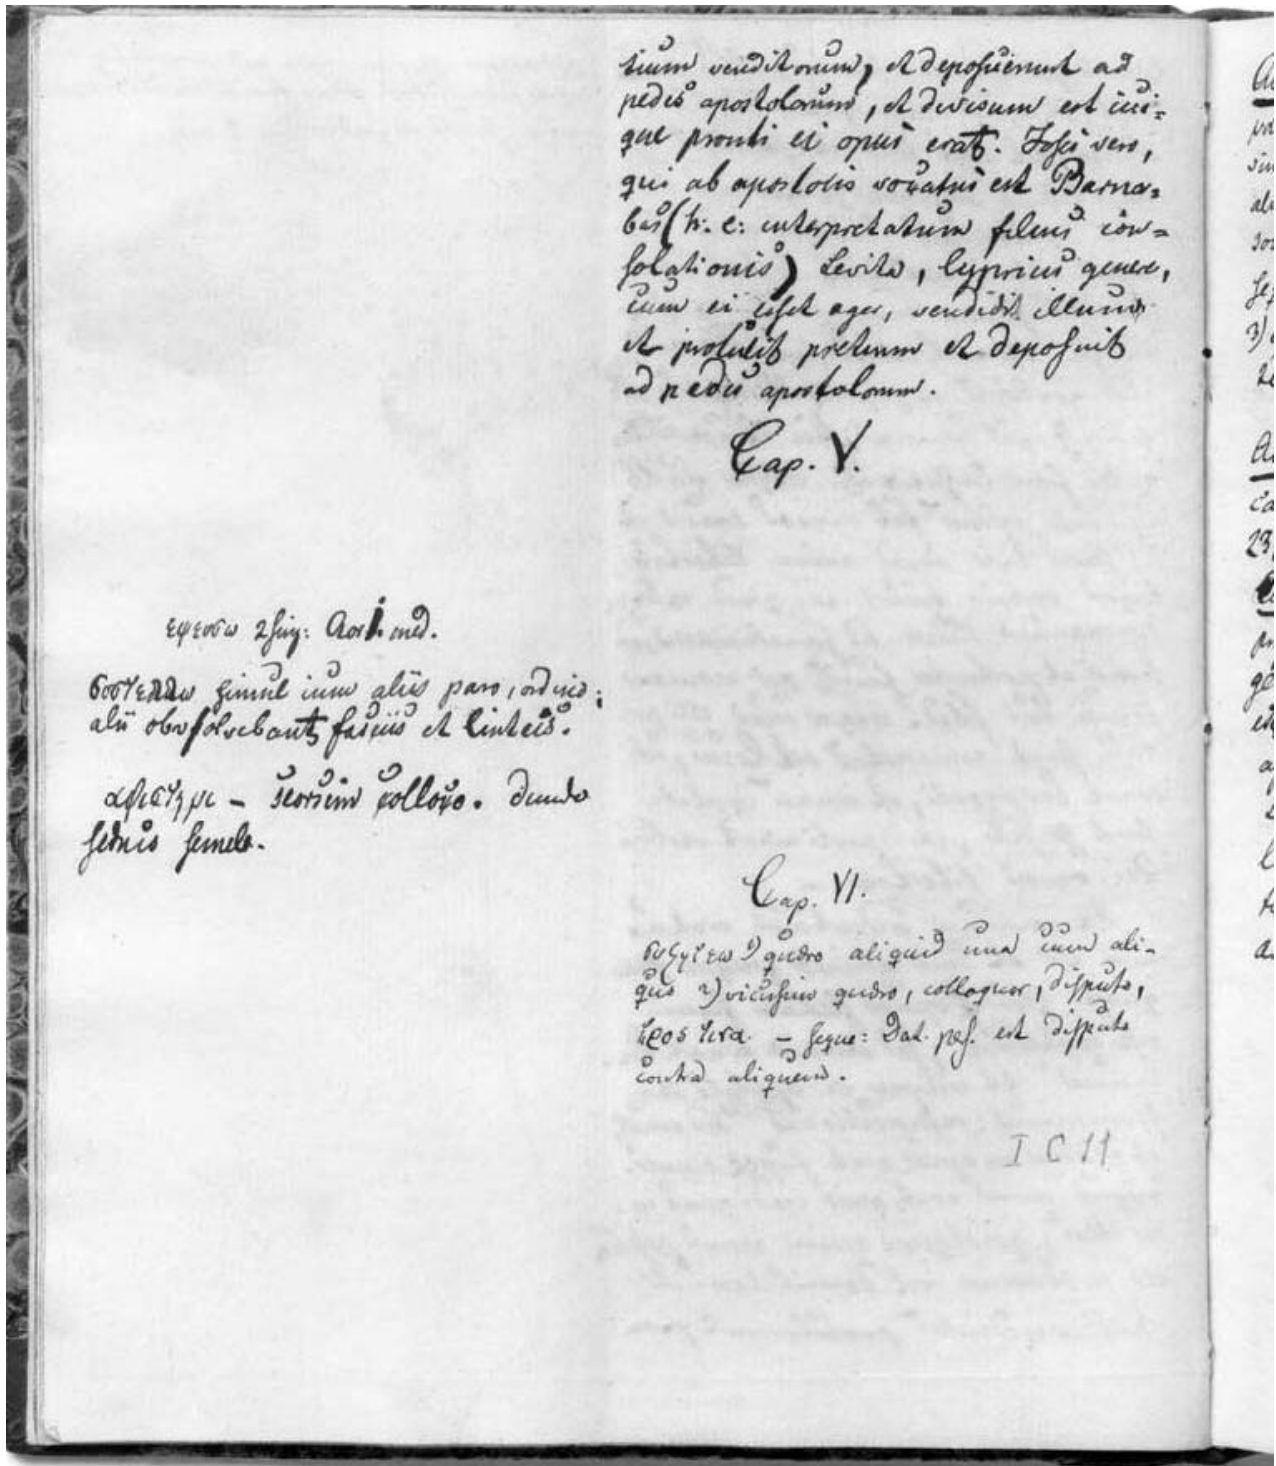 tium venditorum, et deposuerunt ad
pedes apostolorum, et divisum est cui-
que prouti ei opus erat. Joses vero,
qui ab apostolis vocatus est Barna-
bas (h: e: interpretatum filius con=
solationis) Levita, Cyprius genere,
cum ei esset ager, vendidit illum
et protulit pretium et deposuit
ad pedes apostolorum.
Cap. V.
εψευσω 2 sing: Aor 1. med.
συστελλω simul cum aliis paro, ordino;
alii obvolvebant fasciis et linteis.
αφιστημι – seorsim colloco.
Cap. VI.
συζητεω 1) quaero aliquid una cum ali-
quo 2) vicissim quaero, colloquor, disputo,
προς τινα – seque: Dat. pers. est disputo
contra aliquem.
I C 11